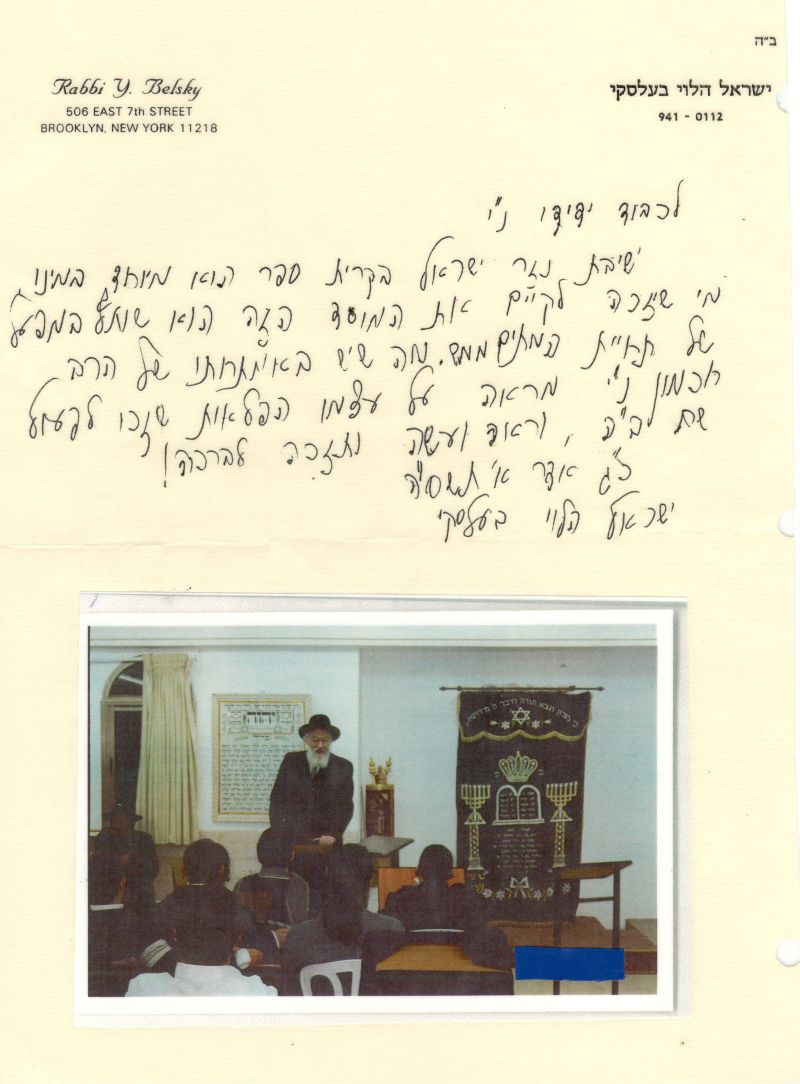 ב"ה
Rabbi Y. Belsky
506 EAST 7th STREET
BROOKLYN, NEW YORK 11218
ישראל הלוי בעלסקי
941 - 0112
לכבוד ידידי נ"י
ישיבת נזר ישראל בקרית ספר הוא מיוחד במינו
מי שיזכה לקיים את המוסד הזה הוא שותף במפעל
של תחיית המתים ממש. מה שיש באישיותו של הרב
רחמון נ"י מראה על עצמו הפלאות שזכו לפעול
שם ב"ה, וראה ועשה ותזכה לברכה!
כ"ג אדר א' תשס"ה
ישראל הלוי בעלסקי
כי מציון תצא תורה ודבר ה' מירושלים